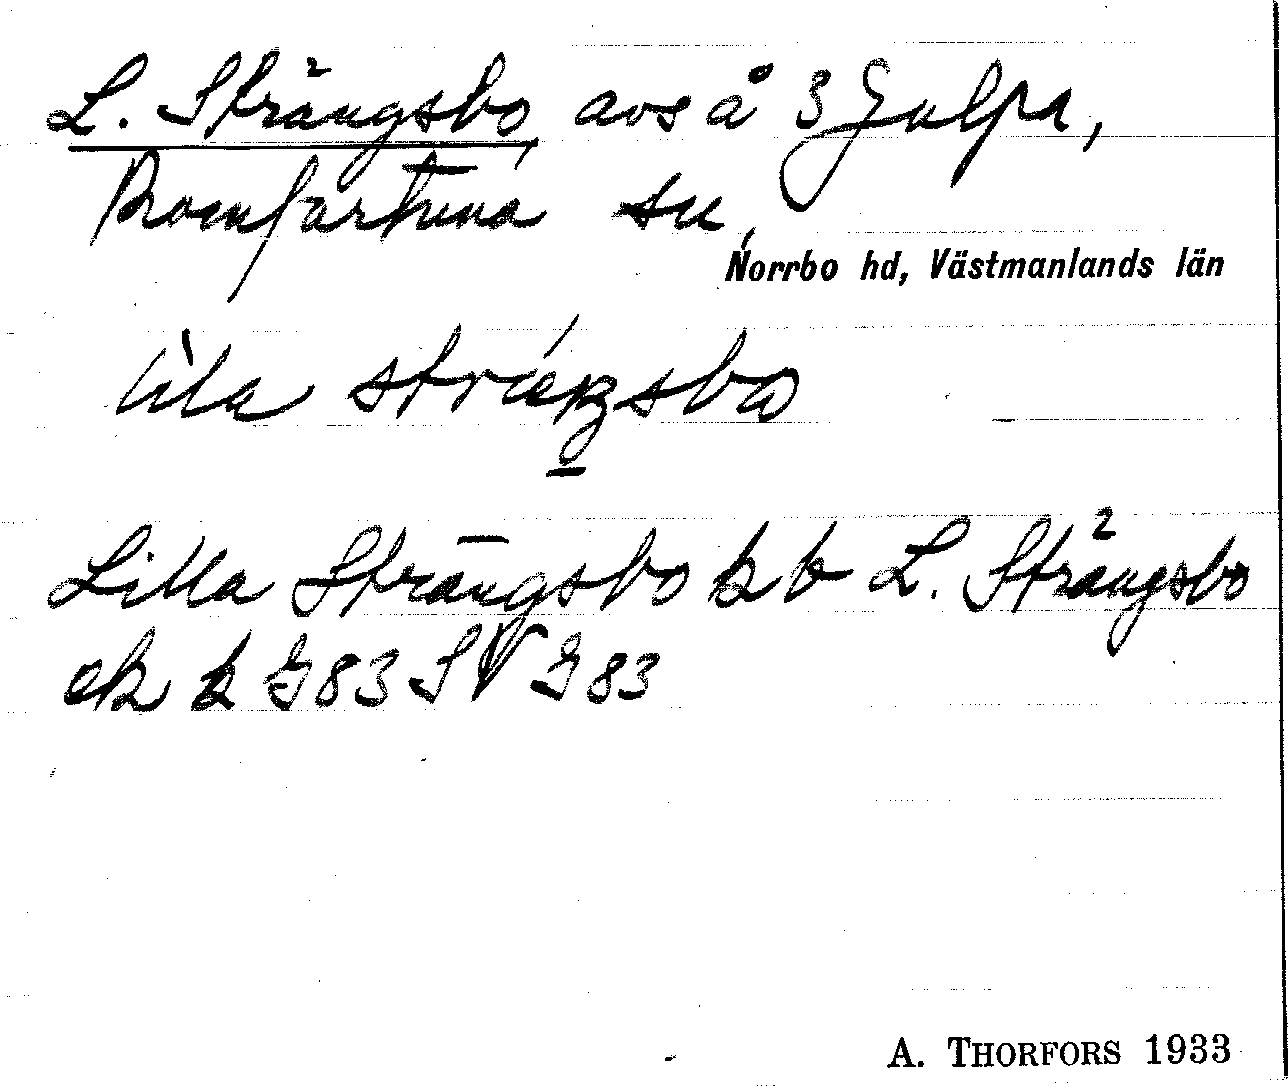 L. Strängsbo, avs å 3 Gulpa,
Romfartuna sn,
Norrbo hd, Västmanlands län
lìla stráŋsbω
Lilla Strängsbo kb L. Strängsbo
ek k G83 SV G83
A. THORFORS 1933